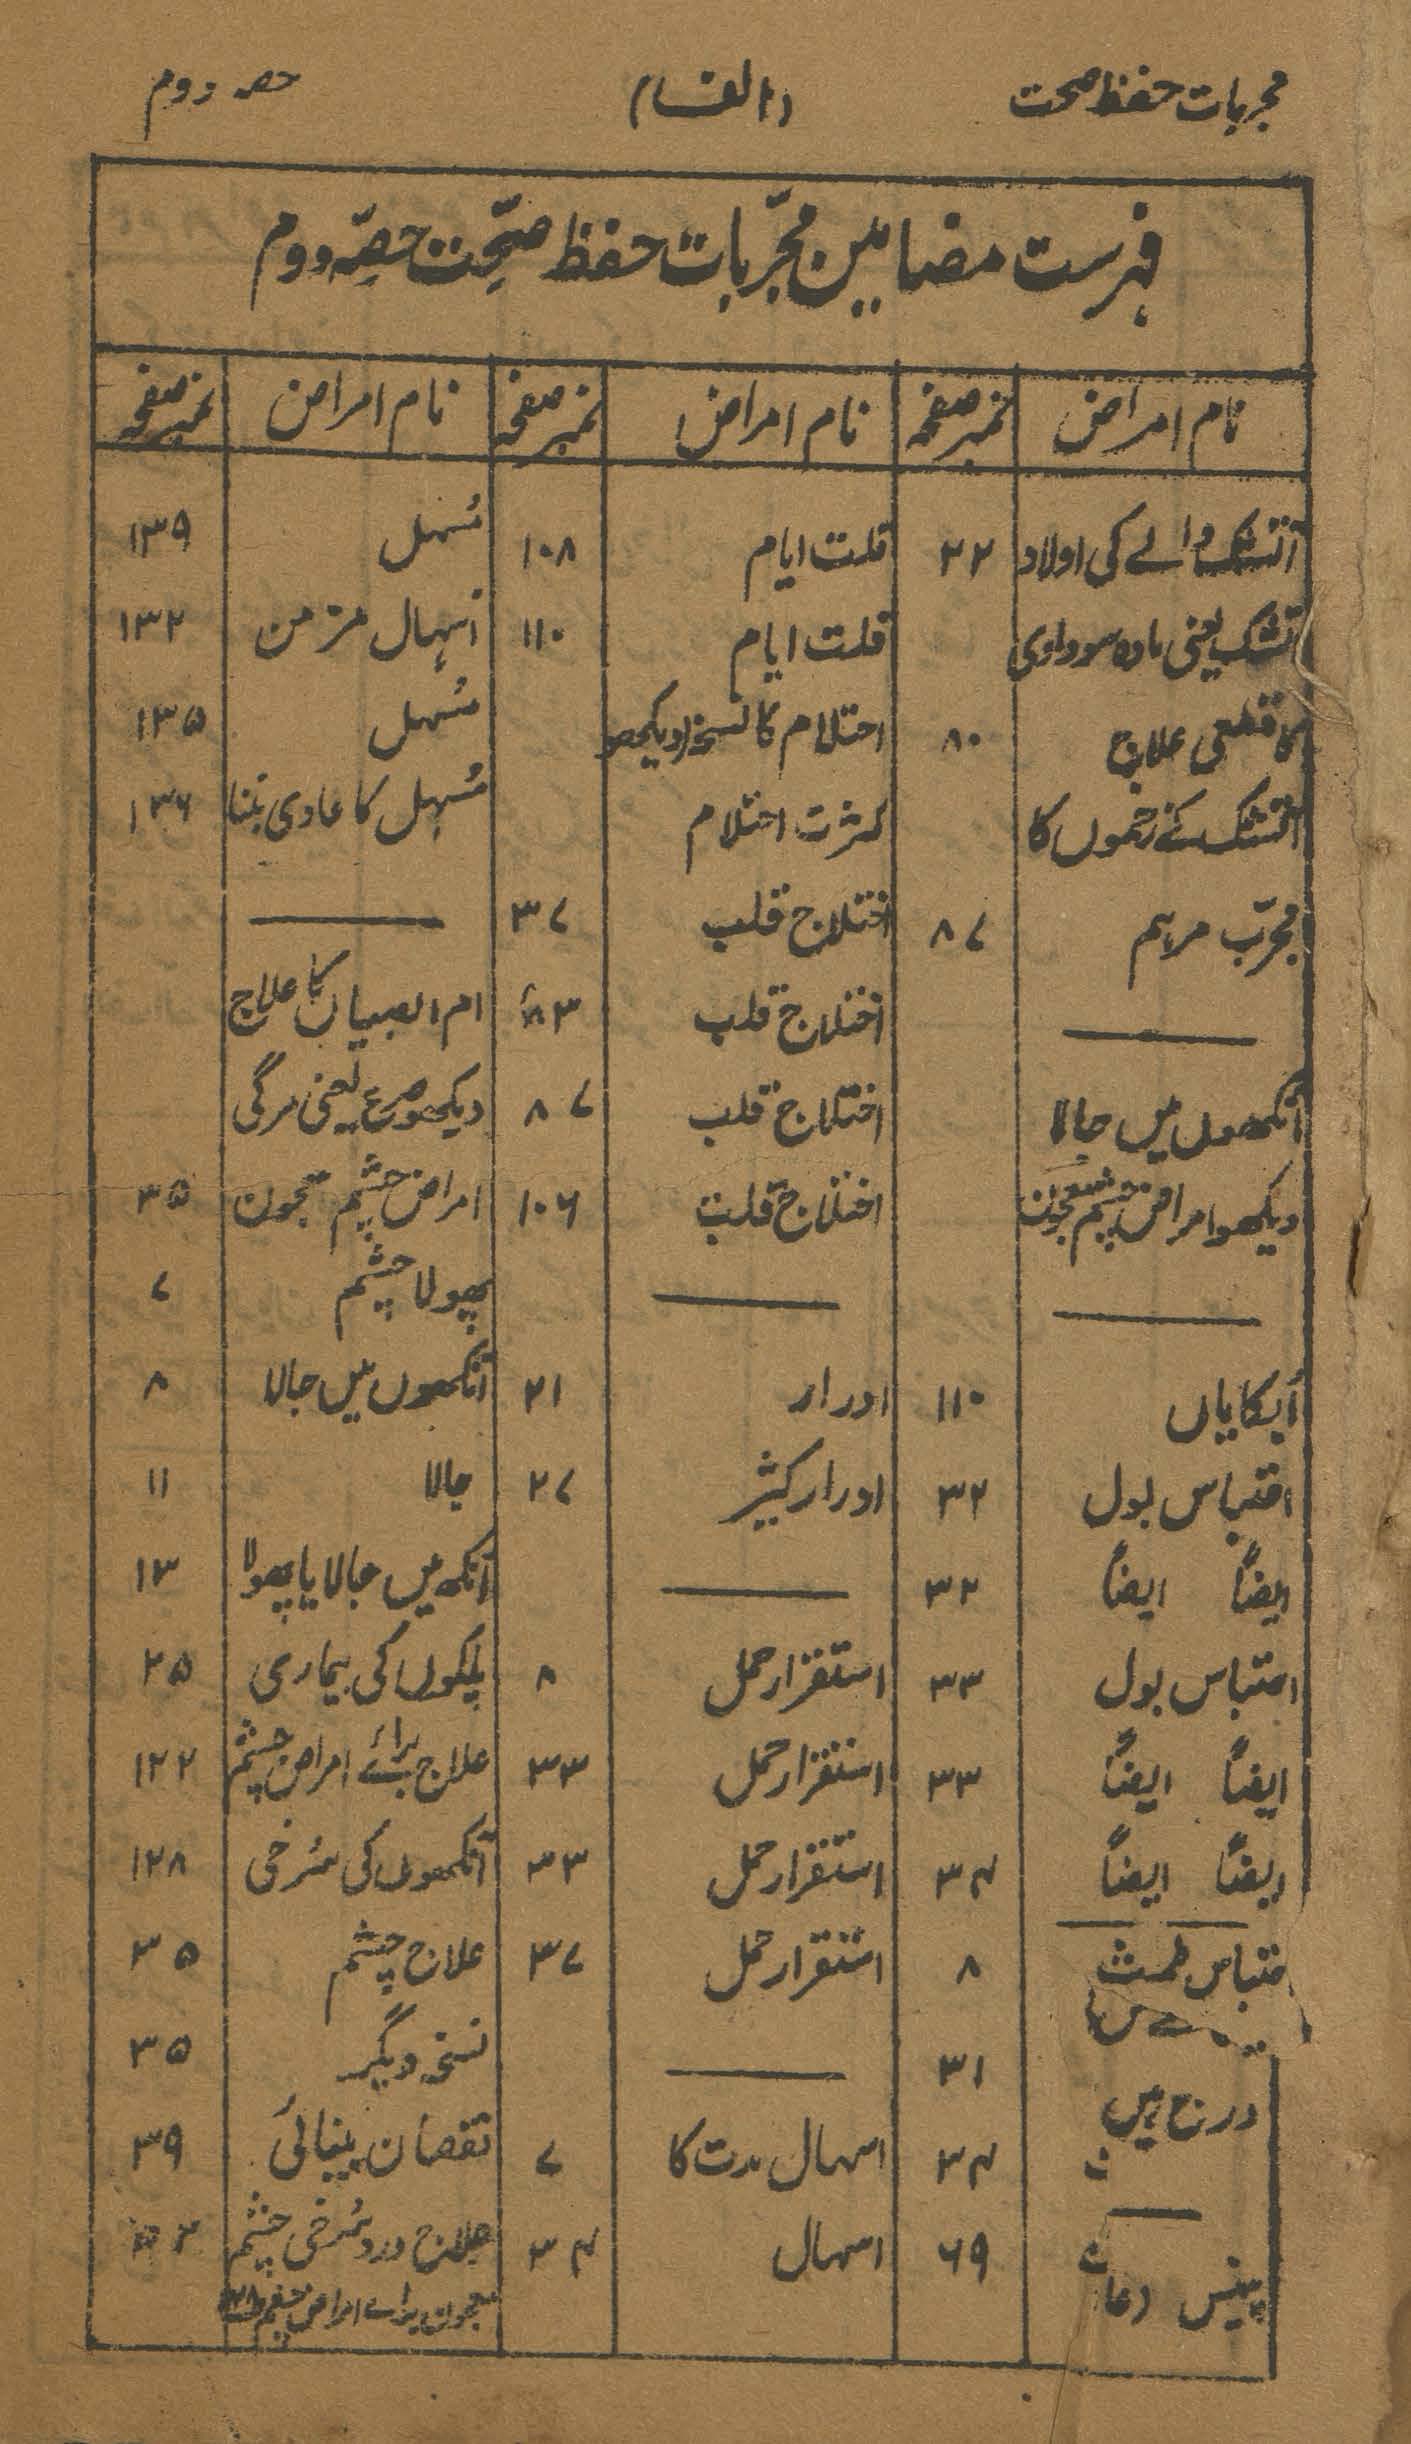 مجربات حفظ صحت (الف) حصہ دوم
فہرست مضامین مجرّبات حفظ صحّت حصّہ دوم
نام امراض نمبر صفحہ نام امراض نمبر صفحہ نام امراض نمبر صفحہ
آتشک والے کی اولاد ۲۲
آتشک یعنی مادہ سوداوی
کا قطعی علاج ۸۰
آتشک کے زخموں کا
مجرّب مرہم ۸۷
آنکھوں میں جالا
دیکھو امراض چشم معجون
اُبکایاں ۱۱۰
احتباس بول ۳۲
ایضاً ایضاً ۳۲
احتباس بول ۳۳
ایضاً ایضاً ۳۳
ایضاً ایضاً ۳۴
حتباس طمث ۸
۳۱
درج ہیں
۳۴
پینس ۶۹
قلت ایام ۱۰۸
قلت ایام ۱۱۰
احتلام کا نسخہ دیکھو
کثرت احتلام
اختلاج قلب ۳۷
اختلاج قلب ۸۳
اختلاج قلب ۸۷
اختلاج قلب ۱۰۶
ادرار ۲۱
ادرار کثیر ۲۷
استقرار حمل ۸
استقرار حمل ۳۳
استقرار حمل ۳۳
استقرار حمل ۳۷
اسہال مدت کا ۷
اسہال ۳۴
مُسہل ۱۳۹
اسہال مزمن ۱۳۲
مُسہل ۱۳۵
مُسہل کا عادی بننا ۱۳۶
ام الصبیان کا علاج
دیکھو صرع یعنی مرگی
امراض چشم معجون ۳۵
پھولا چشم ۷
آنکھوں میں جالا ۸
جالا ۱۱
آنکھ میں جالا یا پھولا ۱۳
پلکوں کی بیماری ۲۵
علاج برائے امراض چشم ۱۲۲
آنکھوں کی سُرخی ۱۲۸
علاج چشم ۳۵
نسخہ دیگر ۳۵
نقصان بینائی ۳۹
علاج درد سُرخی چشم
معجون برائے امراض چشم